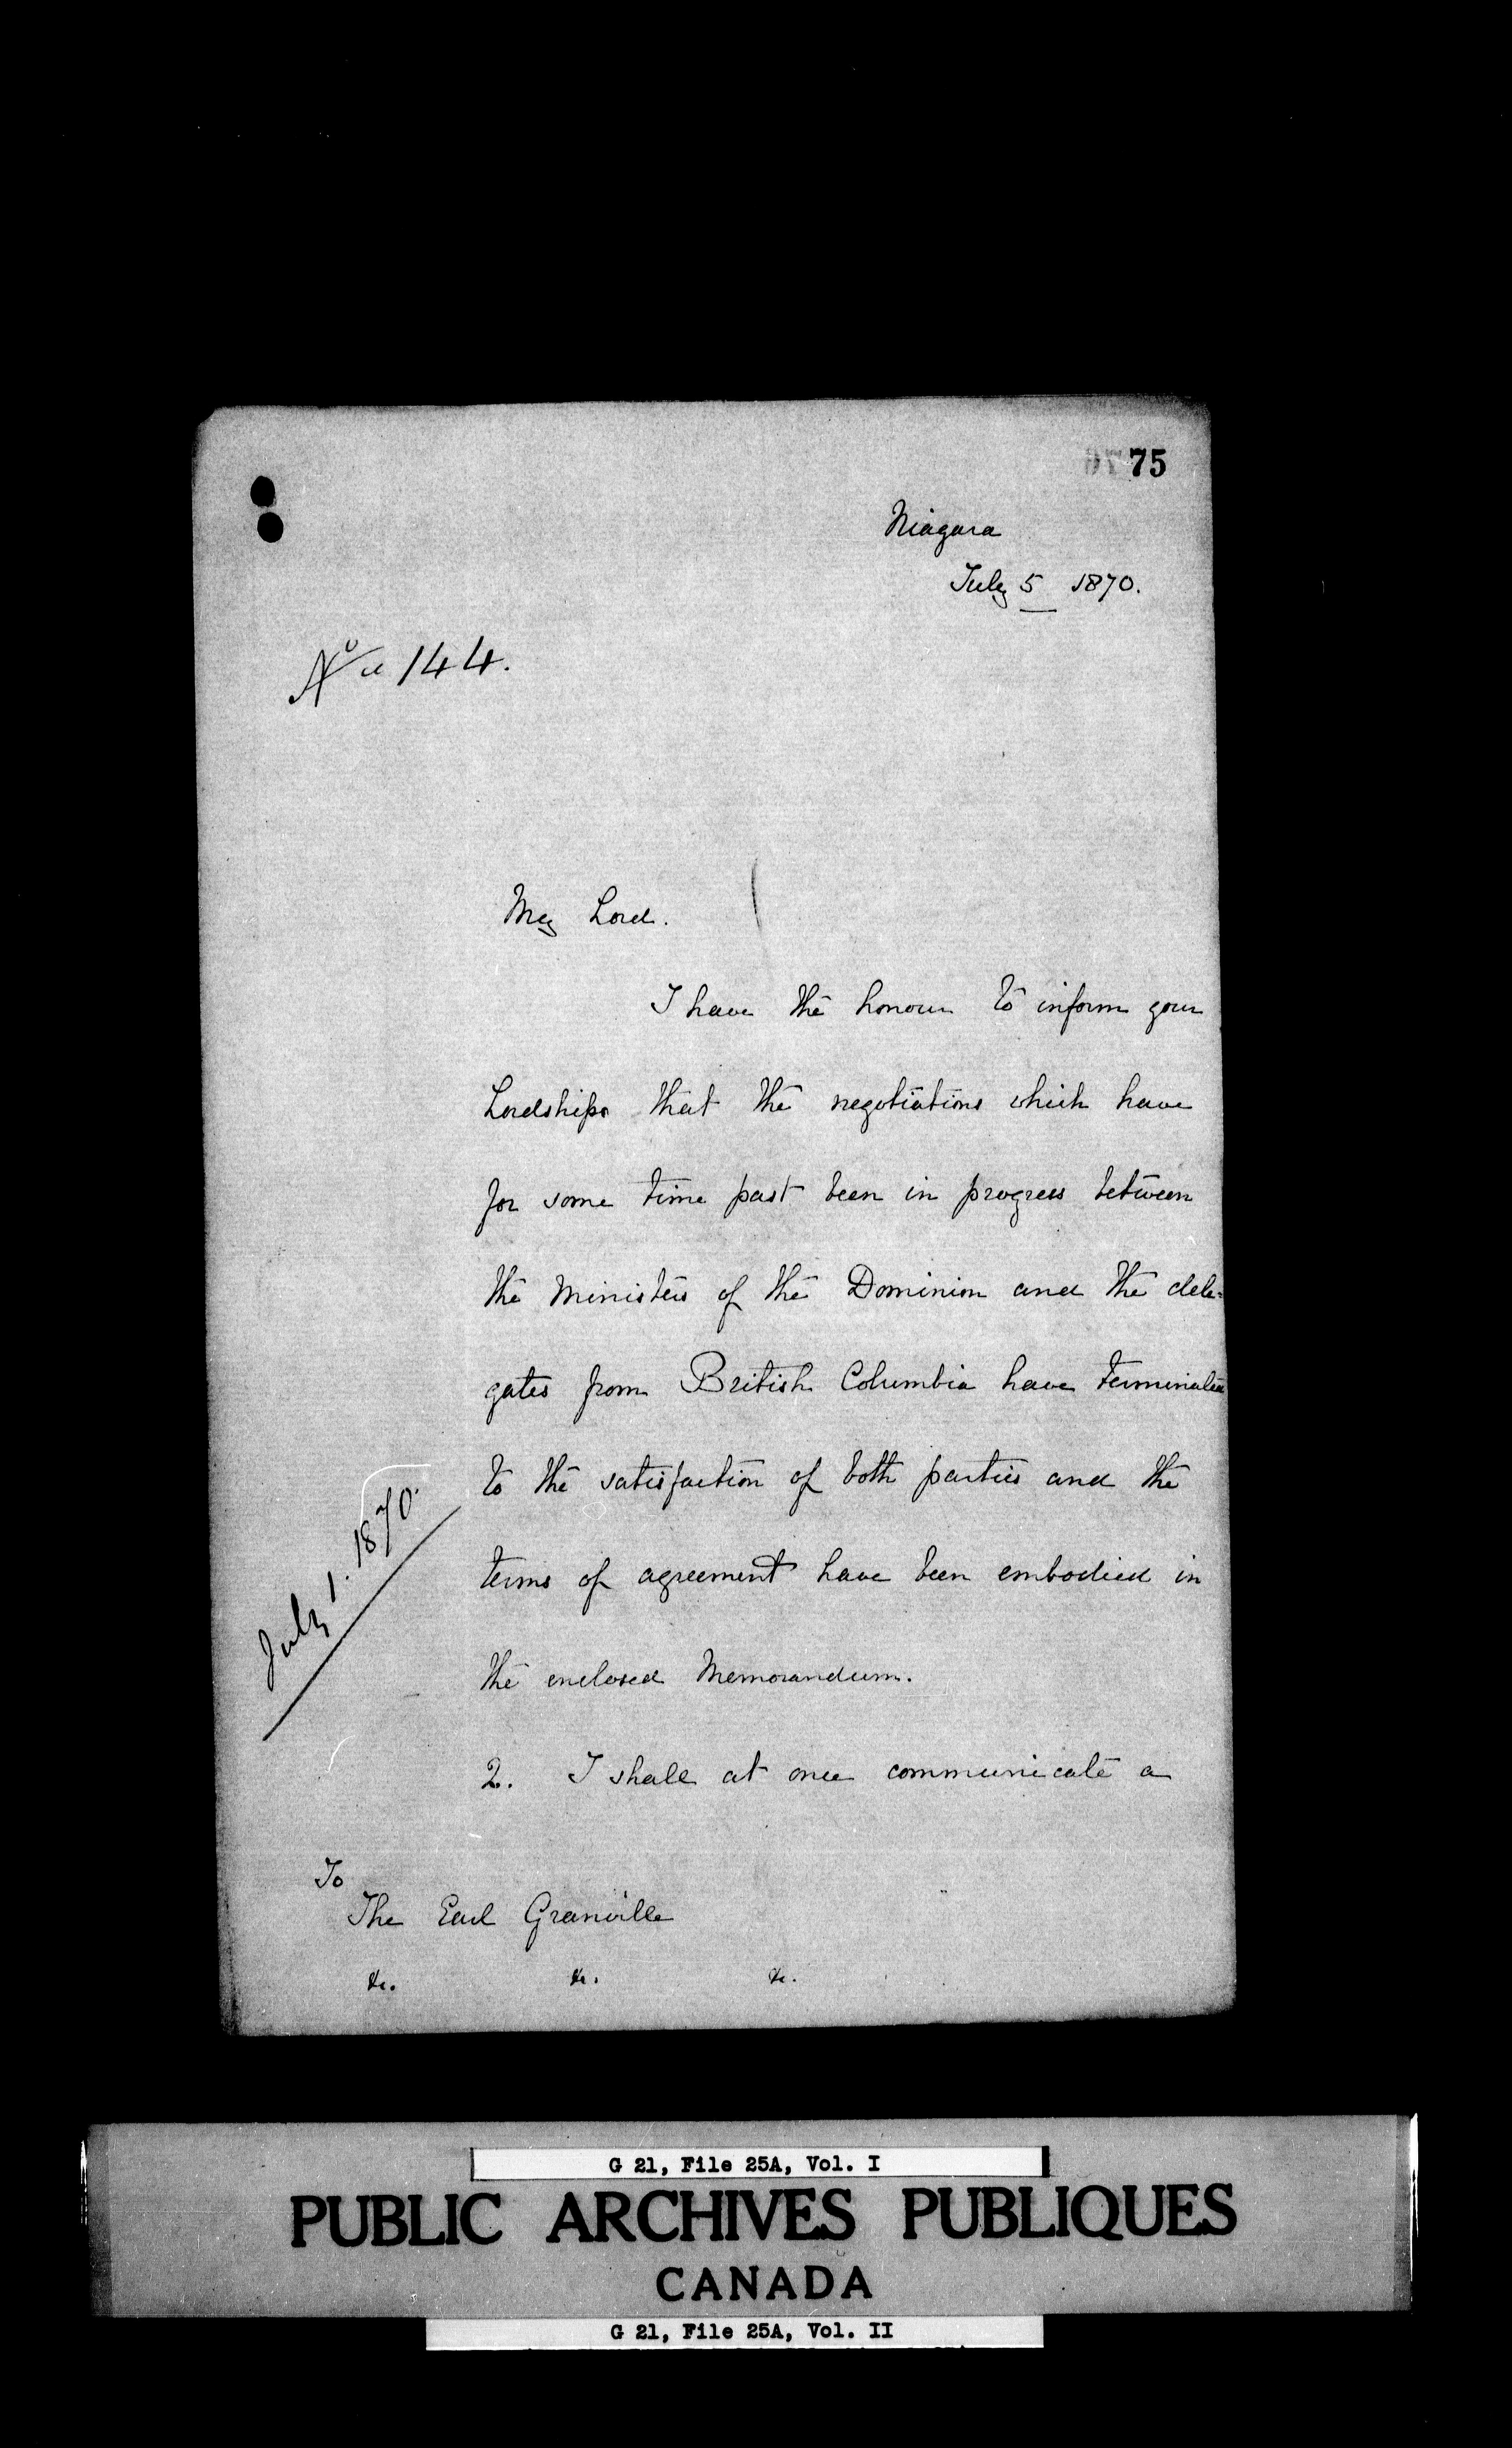 75
Niagara
July 5 1870.
No 144.
My Lord.
I have the honour to inform your
Lordship that the negotiations which have
for some time past been in progress between
the Ministers of the Dominion and the dele=
gates from British Columbia have terminated
to the satisfaction of both parties and the
terms of agreement have been embodied in
the enclosed Memorandum.
July 1. 1870.
2. I shall at once communicate a
To
The Earl Granville
&c. &c. &c.
G 21, File 25A, Vol. I
PUBLIC ARCHIVES PUBLIQUES
CANADA
G 21, File 25A, Vol. II